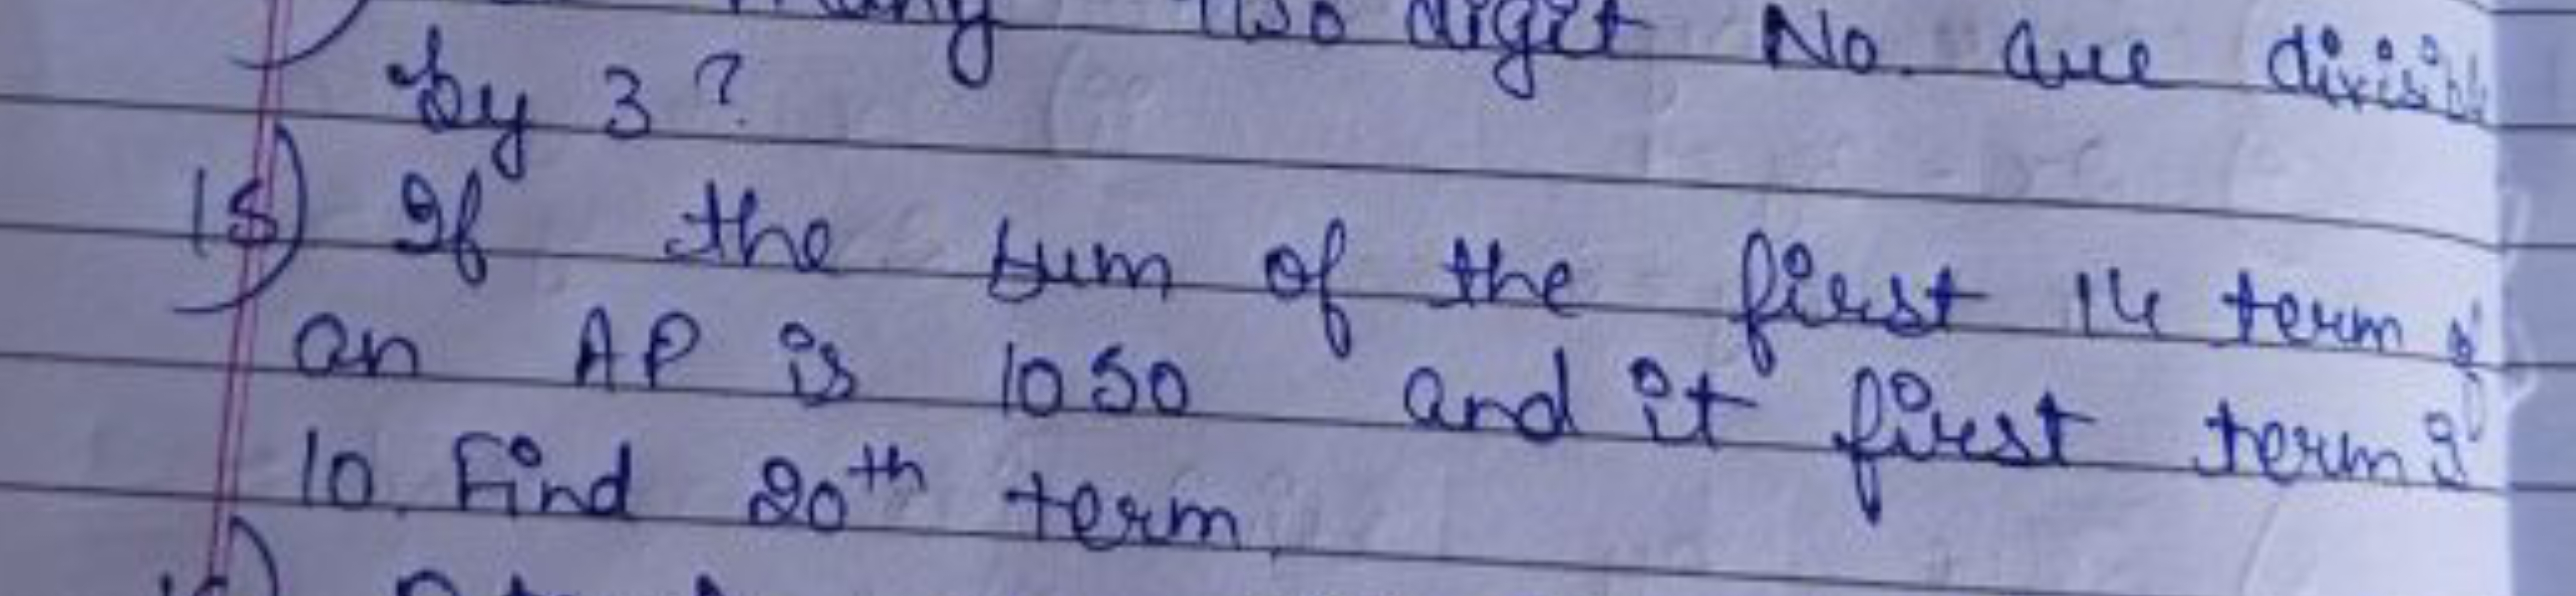 many two digit No. are divisible
by 3 ?
15) If the sum of the first 14 term of
an AP is 1050 and it first term is
10. Find 20th term